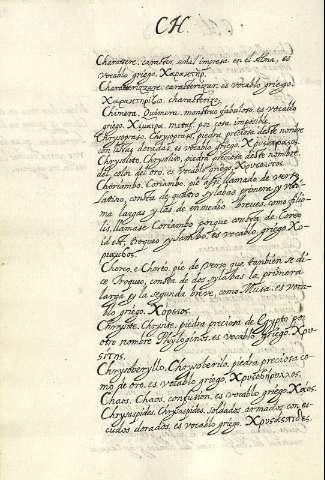 CH.
Charactere, caracter, señal impresa en el Alma, es
vocablo griego. Χαρακτηρ.
Characterizzare, caracterizar, es vocablo griego,
Χαρακτηριζω, characterizo.
Chimera, Quimera, monstruo fabuloso, es vocablo
griego. Χιμαιρα. metaf. por cosa imposible.
Chrysopraso, Chrysopraso, piedra preciosa deste nombre
con doradas, es vocablo griego, Χρυσοπρασος.
Chrysolito, Chrysolito, piedra preciosa deste nombre,
del color del oro, es vocablo griego, Χρυσολιτος.
Choriambo, Coriambo, pie assi llamado de verso
latino, consta de quatro sylabas primera y ulti-
ma larga y las de enmedio breves, como filio-
lis, llamase Coriambo porque consta de Coreo
id est, troqueo y Iambo, es vocablo griego Χο-
ριαμβος.
Choreo, e Choréo, pie de verso que tambien se di-
ce Troqueo, consta de dos sylabas la primera
larga y la segunda breve, como Musa, es voca-
blo griego. Χορειος.
Chrysite, Chrysite, piedra preciosa de Egypto por
otro nombre Phyloginos, es vocablo griego. Χρυ-
σιτης.
Chrysoberyllo, Chrysoberilo, piedra preciosa co-
mo de oro, es vocablo griego, Χρυσοβηρυλλος.
Chaos, Chaos, confusion, es vocablo griego. Χαος.
Chrysaspides, Chrysaspides, soldados armados con es-
cudos dorados, es vocablo griego. Χρυσασπιδες.